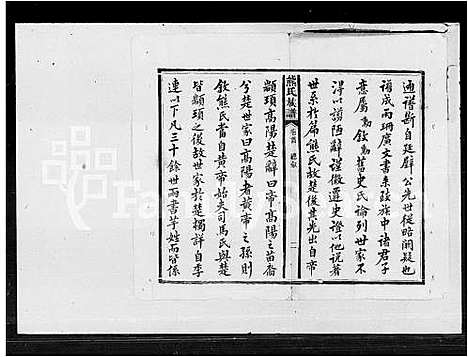 通譜斷自廷辟公先世從略闕疑也
譜成而珊廣文書來致族中諸君子
意屬為敘為舊史氏論列世家不
得以謭陋辭謹徵遷史證以他說著
世系於篇熊氏故楚後其先出自帝
熊氏族譜
卷首 總敘
一
顓頊高陽楚辭曰帝高陽之苗裔
兮楚世家曰高陽者黃帝之孫則
敘熊氏當自黃帝始夫司馬氏與楚
皆顓頊之後故世家於楚獨詳自季
連以下凡三十餘世而書芈姓而皆係